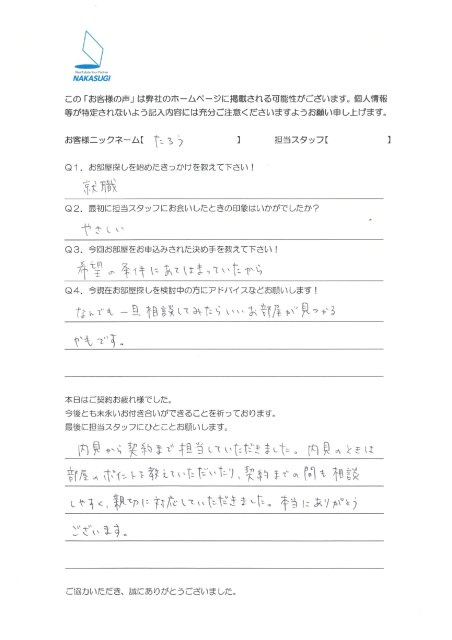 NAKASUGI
この「お客様の声」は弊社のホームページに掲載される可能性がございます。個人情報
等が特定されないよう記入内容には充分ご注意くださいますようお願い申し上げます。
お客様ニックネーム【 たろう 】 担当スタッフ【 】
Q1．お部屋探しを始めたきっかけを教えて下さい！
就職
Q2．最初に担当スタッフにお会いしたときの印象はいかがでしたか？
やさしい
Q3．今回お部屋をお申込みされた決め手を教えて下さい！
希望の条件にあてはまっていたから
Q4．今現在お部屋探しを検討中の方にアドバイスなどお願いします！
なんでも一旦相談してみたらいいお部屋が見つかる
かもです。
本日はご契約お疲れ様でした。
今後とも末永いお付き合いができることを祈っております。
最後に担当スタッフにひとことお願いします。
内見から契約まで担当していただきました。内見のときは
部屋のポイントを教えていただいたり、契約までの間も相談
しやすく、親切に対応していただきました。本当にありがとう
ございます。
ご協力いただき、誠にありがとうございました。